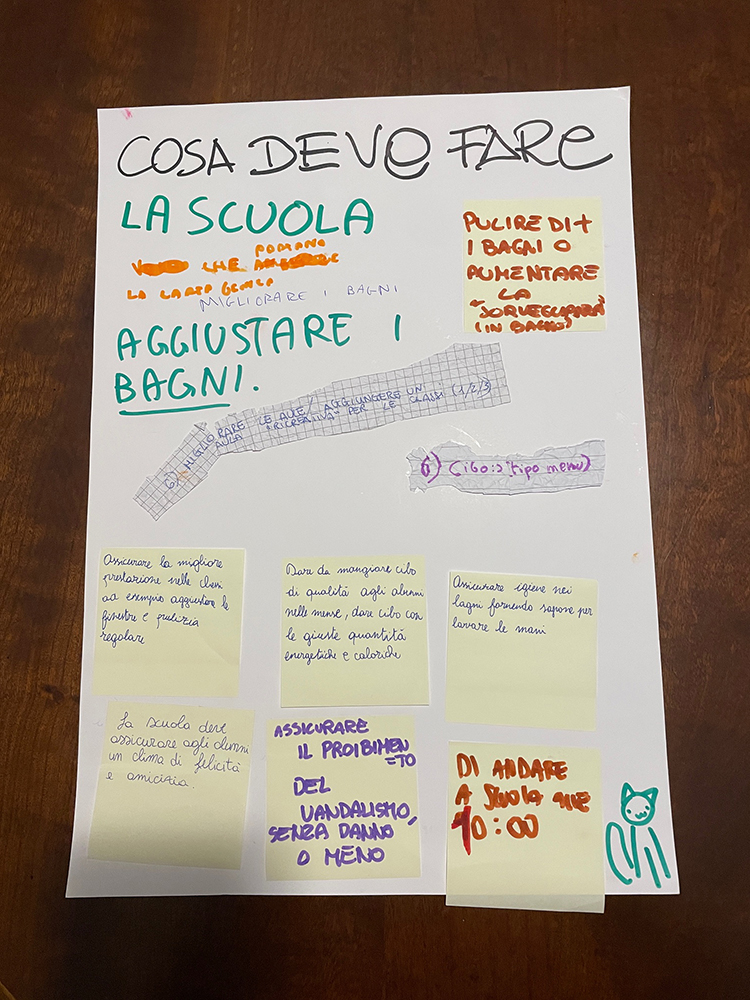 COSA DEVE FARE
LA SCUOLA
CHE
PORTANO
LA CARTA
MIGLIORARE I BAGNI
AGGIUSTARE I
BAGNI.
PULIRE DI +
I BAGNI O
AUMENTARE
LA
"SORVEGLIANZA
(IN BAGNO)"
6) MIGLIORARE LE AULE/AGGIUNGERE UN
AULA "RICREATIVA" PER LE CLASSI (1/2/3)
6) Cibo:> (tipo menu)
Assicurare la migliore
prestazione nelle classi
ad esempio aggiustare le
finestre e pulizia
regolare
Dare da mangiare cibo
di qualità agli alunni
nelle mense, dare cibo con
le giuste quantità
energetiche e caloriche
Assicurare igiene nei
bagni fornendo sapone per
lavare le mani
La scuola deve
assicurare agli alunni
un clima di felicità
e amicizia.
ASSICURARE
IL PROIBIMEN
=TO
DEL
VANDALISMO,
SENZA DANNO
O MENO
DI ANDARE
A SCUOLA ALLE
10:00